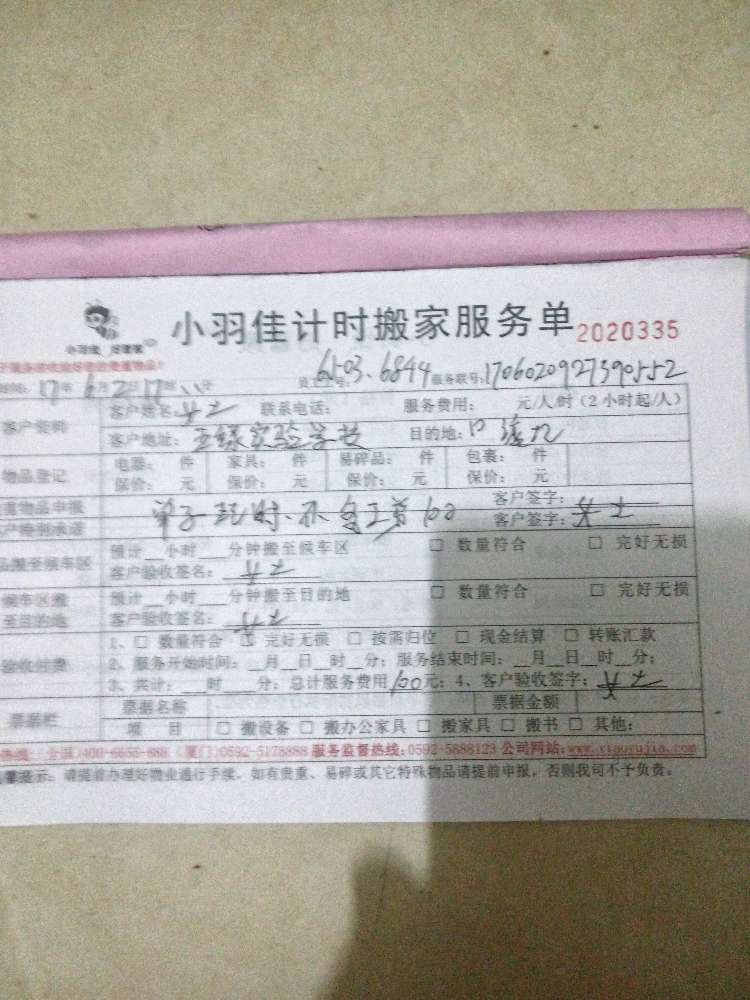 小羽佳计时搬家服务单 2020335
小羽佳 好管家
17年6月2 17时
6503.6844 服务联号:1706020927390552
客户资料 客户姓名: 女士 联系电话: 服务费用: 元/人/时(2小时起/人)
客户地址: 五缘实验学校 目的地:
物品登记 电器: 件 家具: 件 易碎品: 件 包裹: 件
保价: 元 保价: 元 保价: 元 保价: 元
物品申报 客户签字:
客户特别承诺 客户签字: 女士
单子 100
品搬至候车区 预计__小时__分钟搬至候车区 □ 数量符合 □ 完好无损
客户验收签名: 女士
候车区搬 预计__小时__分钟搬至目的地 □ 数量符合 □ 完好无损
至目的地 客户验收签名: 女士
验收付费 1、□ 数量符合 □ 完好无损 □ 按需归位 □ 现金结算 □ 转账汇款
2、服务开始时间:__月__日__时__分; 服务结束时间:__月__日__时__分;
3、共计:__时__分; 总计服务费用100元; 4、客户验收签字: 女士
票据栏 票据名称 票据金额
项 目 □ 搬设备 □ 搬办公家具 □ 搬家具 □ 搬书 □ 其他:
热线:(全国)400-6655-888 (厦门)0592-5178888 服务监督热线:0592-5888123 公司网站:www.xiaoyujia.com
温馨提示: 请提前办理好物业通行手续。如有贵重、易碎或其它特殊物品请提前申报,否则我司不予负责。